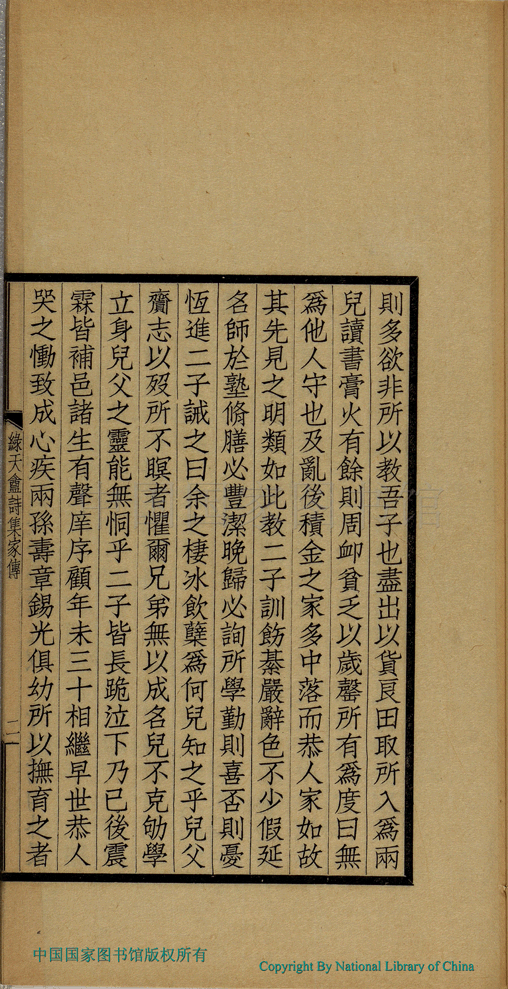 則多欲非所以教吾子也盡出以貨良田取所入爲兩
兒讀書膏火有餘則周卹貧乏以歲罄所有爲度曰無
爲他人守也及亂後積金之家多中落而恭人家如故
其先見之明類如此教二子訓飭綦嚴辭色不少假延
名師於塾脩膳必豐潔晚歸必詢所學勤則喜否則憂
恆進二子誡之曰余之棲冰飲櫱爲何兒知之乎兒父
齎志以歿所不瞑者懼爾兄弟無以成名兒不克劬學
立身兒父之靈能無恫乎二子皆長跪泣下乃已後震
霖皆補邑諸生有聲庠序顧年未三十相繼早世恭人
哭之慟致成心疾兩孫壽章錫光俱幼所以撫育之者
綠天盦詩集家傳
二
中国国家图书馆版权所有
Copyright By National Library of China